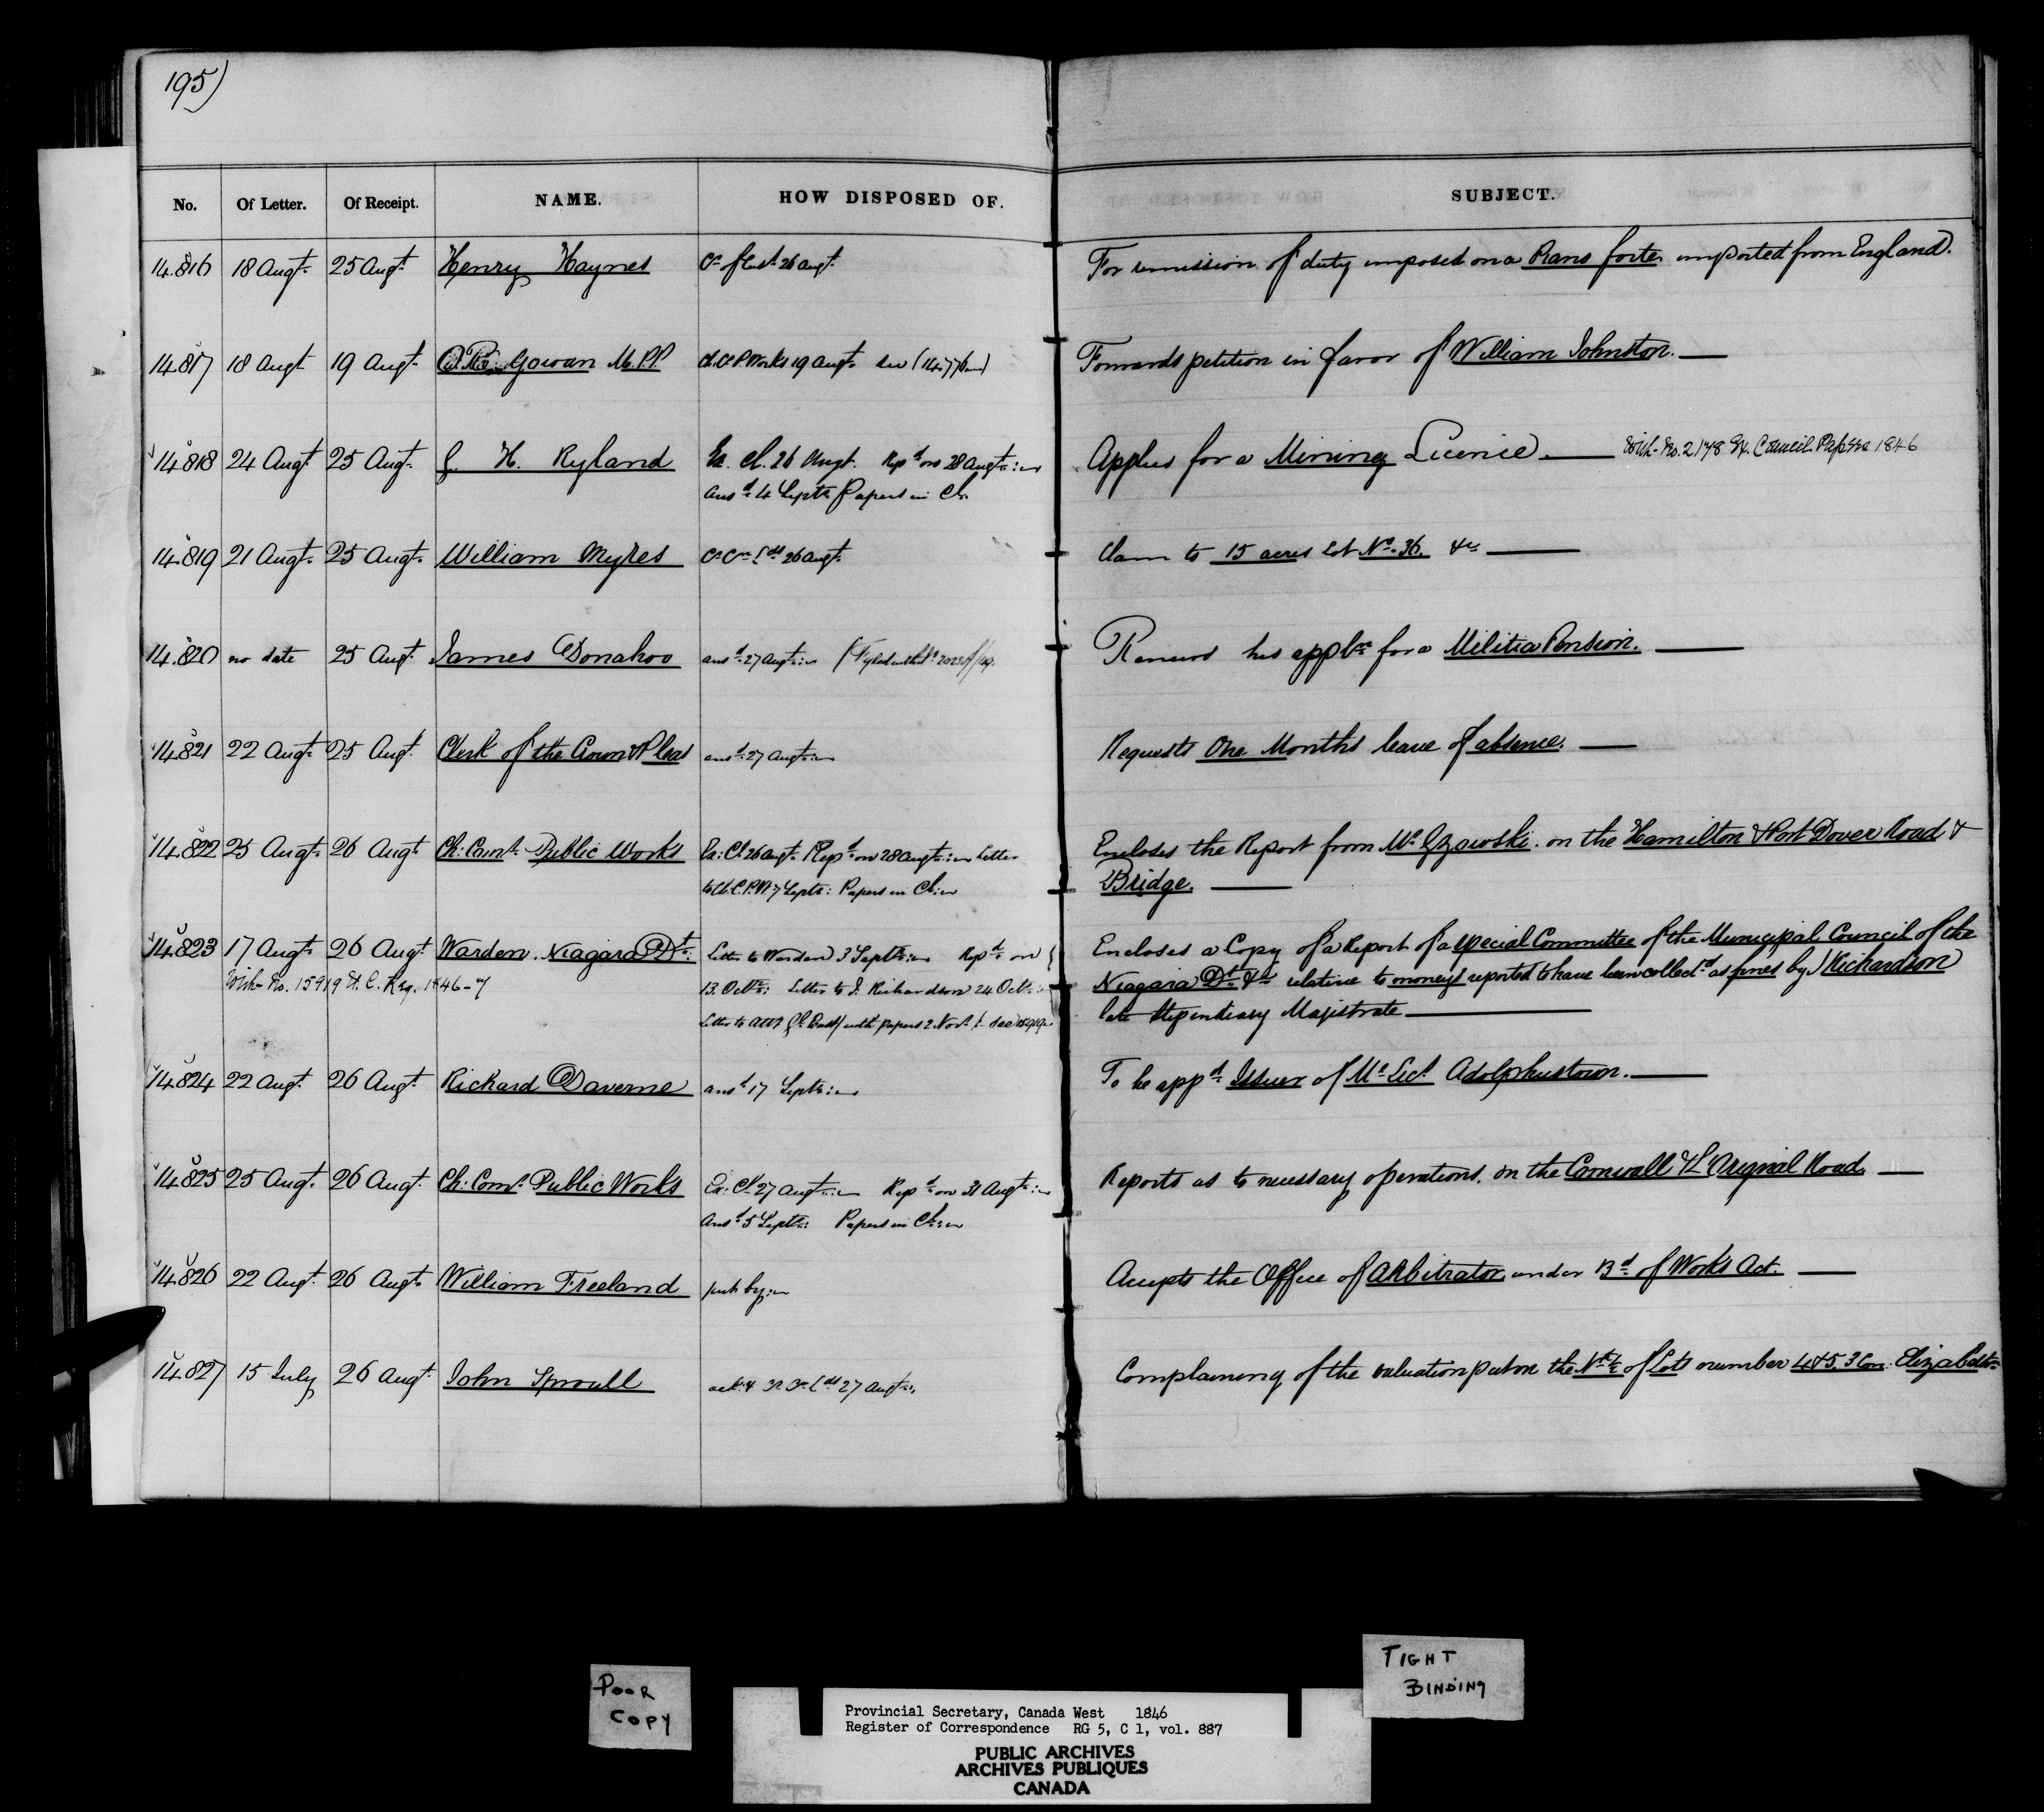 195)
No. Of Letter. Of Receipt. NAME. HOW DISPOSED OF. SUBJECT.
14.816 18 Augt. 25 Augt. Henry Haynes 26 Augt. For remission of duty imposed on a Piano forte imported from England.
14.817 18 Augt 19 Augt. Gowan M.P.P. Works 19 Augt. See (14.776) Forwards petition in favor of William Johnston.
14.818 24 Augt. 25 Augt. G. H. Ryland Ex. Cl. 26 Augt. Repd. on 28 Augt. Applies for a Mining Licence With No. 2178 Ex. Council Papers 1846
Ansd. 4 Septr. Papers in Cl.
14.819 21 Augt. 25 Augt. William Mykes 26 Augt. Claim to 15 acres Lot No. 36. &c
14.820 no date 25 Augt. James Donahoo ansd. 27 Augt. Renews his applon. for a Militia Pension.
14.821 22 Augt. 25 Augt. Clerk of the Crown & Pleas ansd. 27 Augt. Requests One Months leave of absence.
14.822 25 Augt. 26 Augt. Ch: Comr. Public Works Ex: Cl. 26 Augt. Repd. on 28 Augt. Letter Encloses the Report from Mr. Gzowski on the Hamilton & Port Dover Road &
to Ch. C. P. W. 7 Septr: Papers in Cl: Bridge.
14.823 17 Augt. 26 Augt. Warden, Niagara Dt. Letter to Warden 3 Septr. Repd. on Encloses a Copy of a Report of a special Committee of the Municipal Council of the
With No. 15919 Reg. 1846-7 13. Octr: Letter to J. Richardson 24 Octr. Niagara Dt. &c relative to moneys reported to have been collectd. as fines by J Richardson
Letter to with papers 2 Novr. See 15919 late Stipendiary Magistrate
14.824 22 Augt. 26 Augt. Richard Daverne ansd. 17 Septr. To be appd. Issuer of Me. Lics. Adolphustown.
14.825 25 Augt. 26 Augt. Ch: Comr. Public Works Ex: Cl. 27 Augt. Repd. on 31 Augt. Reports as to necessary operations on the Cornwall & L'Orignal Road.
Ansd. 5 Septr: Papers in Cl:
14.826 22 Augt. 26 Augt. William Freeland put by Accepts the Office of Arbitrator under Bd. of Works Act.
14.827 15 July 26 Augt. John Sproull 27 Augt. Complaining of the valuation put on the N ½ of Lots number 4 & 5. 3 Con:
POOR
COPY
TIGHT
BINDING
Provincial Secretary, Canada West 1846
Register of Correspondence RG 5, C 1, vol. 887
PUBLIC ARCHIVES
ARCHIVES PUBLIQUES
CANADA